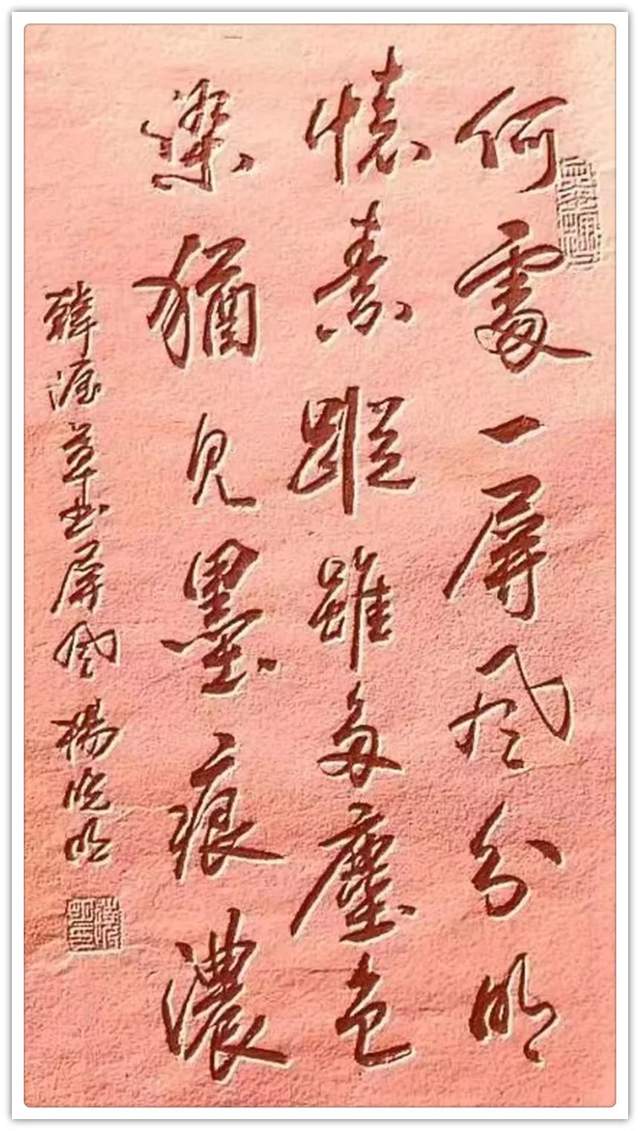 何處一屏風分明
懷素蹤雖多塵色
染猶見墨痕濃
韓渥草書屏風 楊曉明